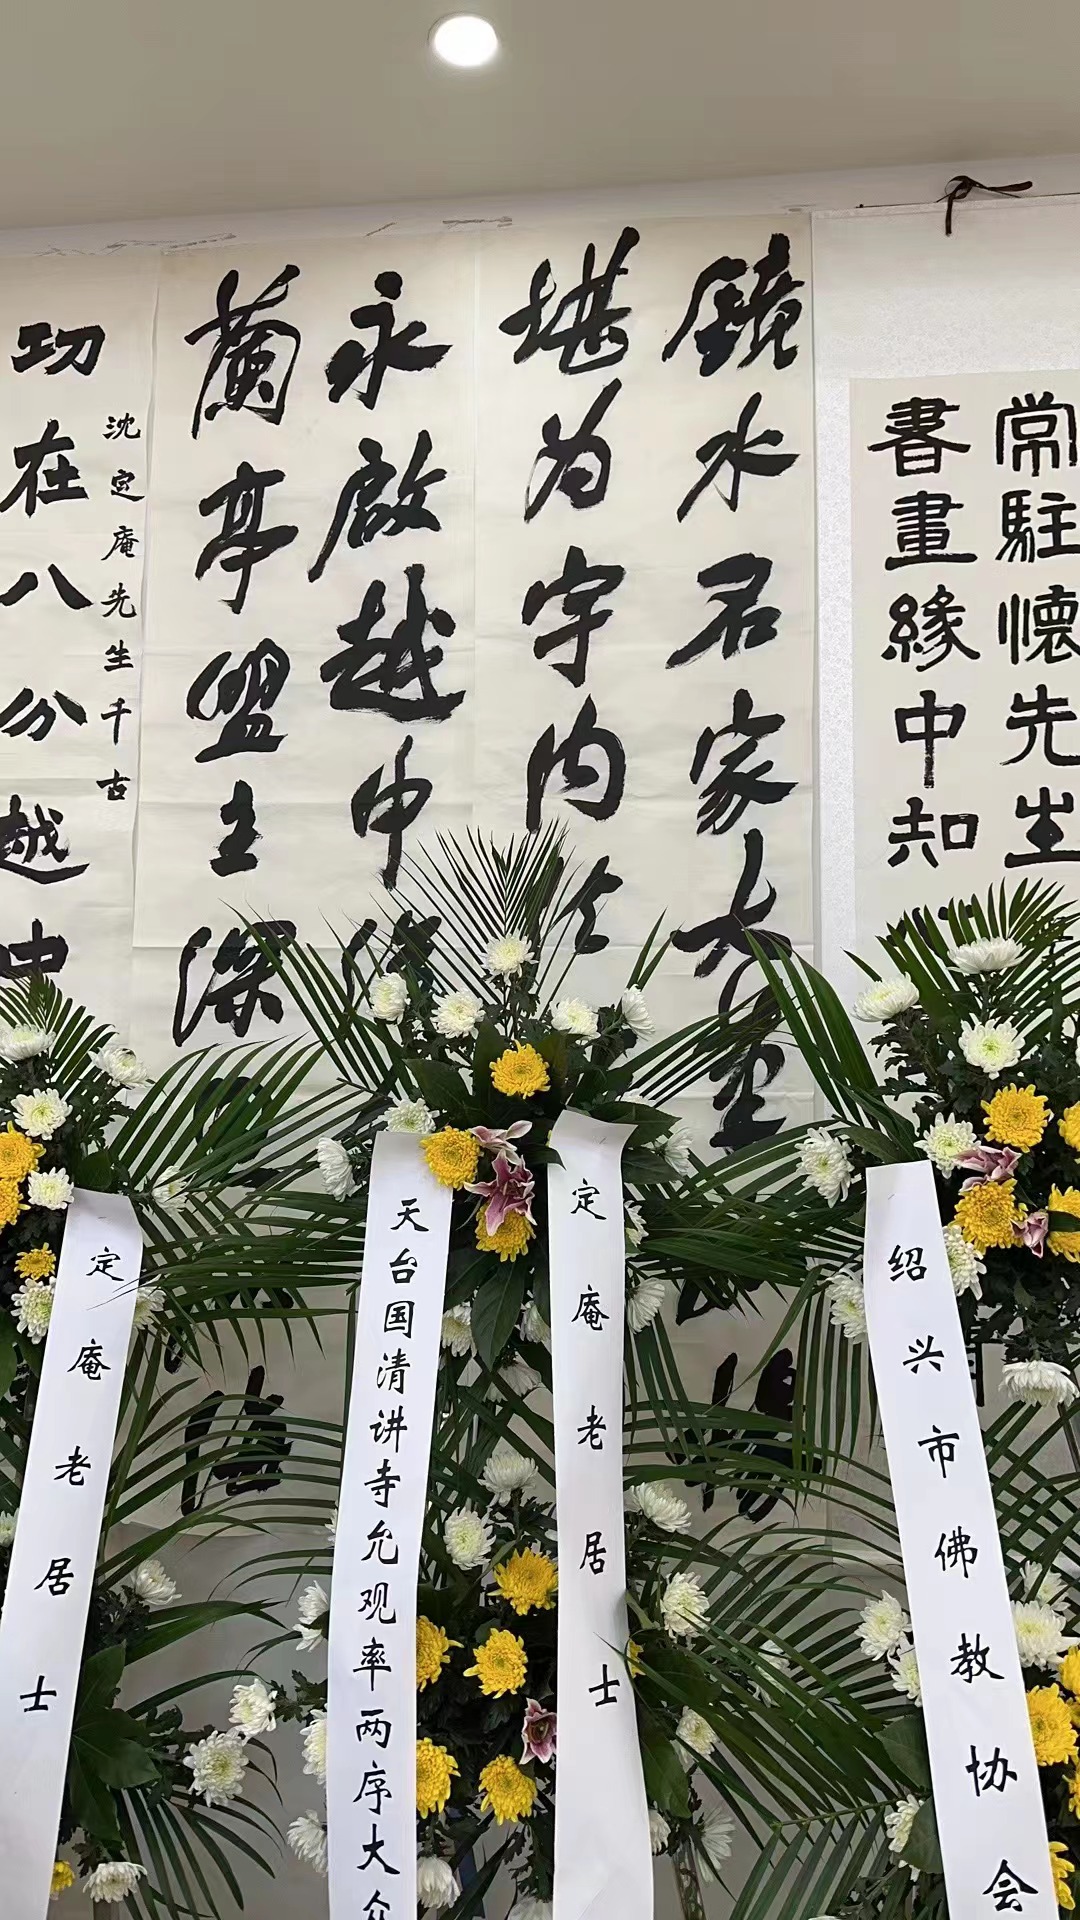 常駐懷先生
書畫緣中知
鏡水名家
堪为宇内
永啟越中
蘭亭盟主深
沈定庵先生千古
功在八分越中
定庵老居士
天台国清讲寺允观率两序大众
定庵老居士
绍兴市佛教协会